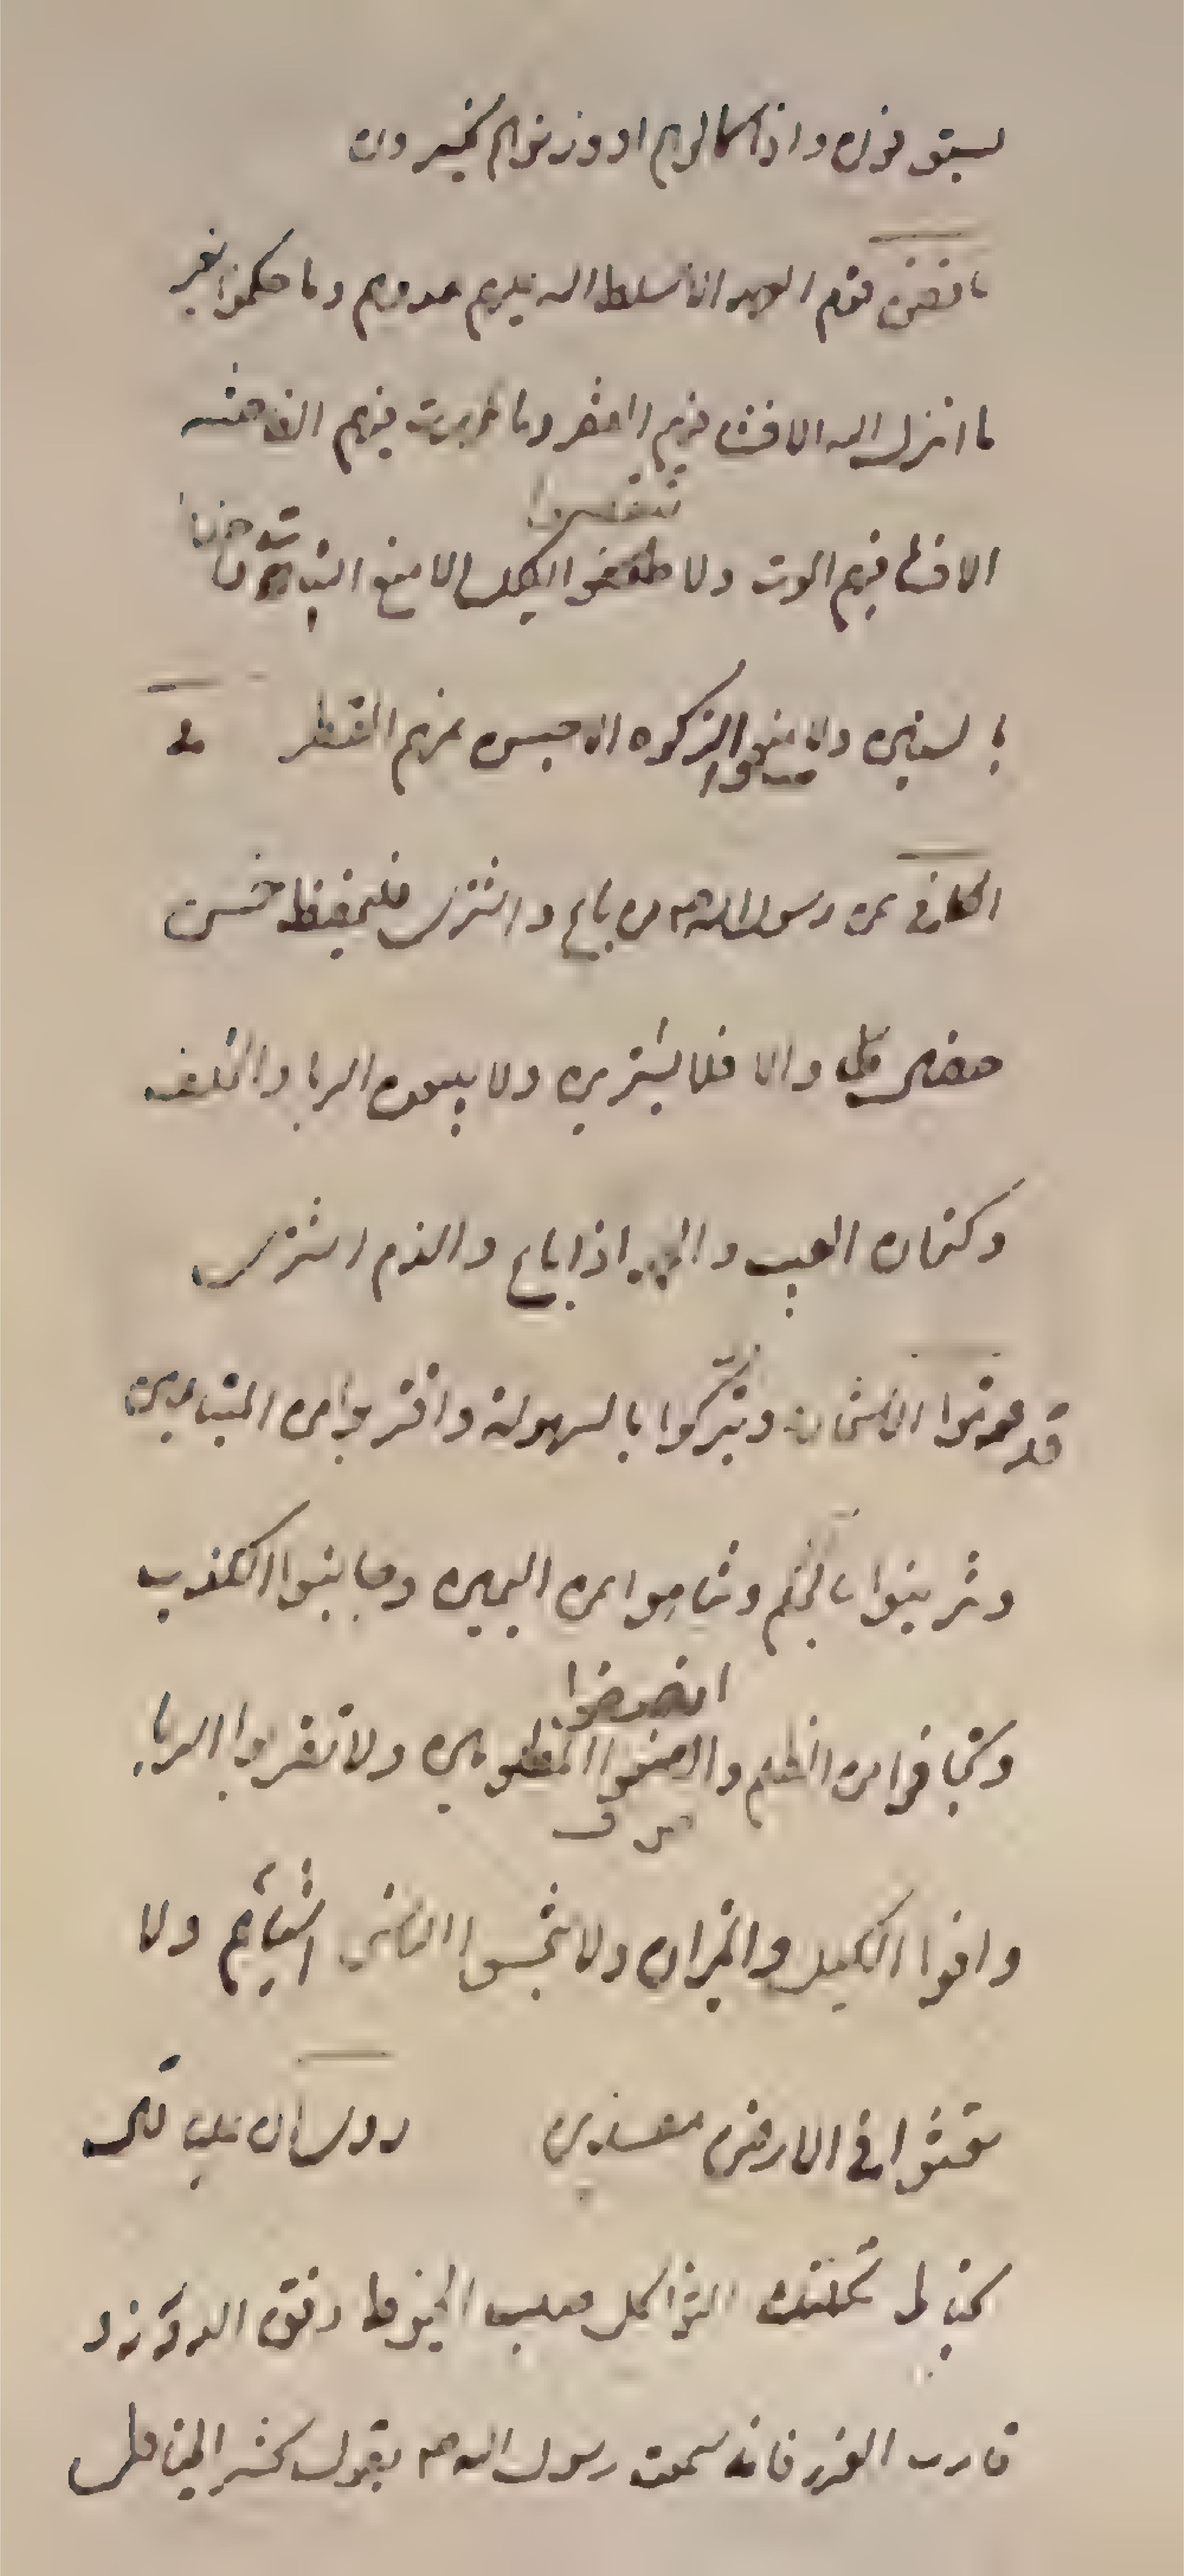 يستوفون واذا كالوهم او وزنوهم يخسرون
ما نقض قوم العهد الا سلط الله عليهم عدوهم وما حكموا بغير
ما انزل الله الا فشا فيهم الفقر وما ظهرت فيهم الفاحشه
تنقصوا
الا فشا فيهم الموت ولا طففوا الكيل الا منع النبات
بالسنين ولا منعوا الزكوه الا حبس عنهم القطر
الكافى عن رسول الله ص من باع واشترى فليحفظ خمس
خصال والا فلا يشترين ولا يبيعن الربا والحلف
وكتمان العيب والحمد اذا باع والذم اشترى
قدموا الاستخاره وتبركوا بالسهولة واقتربوا من المتبايعين
وتزينوا بالحلم وتناهوا عن اليمين وجانبوا الكذب
وتجافوا من الظلم وانصفوا المظلومين ولا تقربوا الربا
واوفوا الكيل والميزان ولا تبخسوا الناس اشيائهم ولا
تعثوا فى الارض مفسدين روى ان على
الخيوط ودقق الدروز و
قارب الغرز فانى سمعت رسول الله ص يقول يحشر الله الخياط